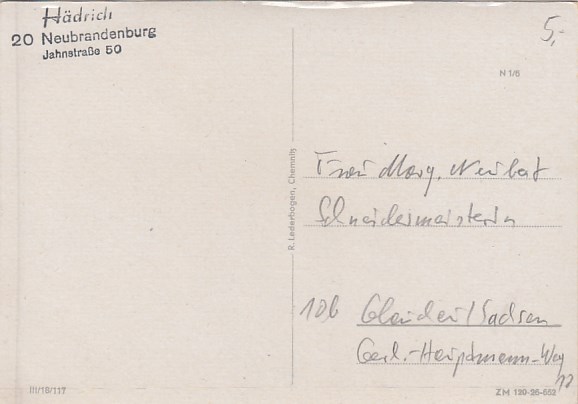 Hädrich
20 Neubrandenburg
Jahnstraße 50
5,-
N 1/6
R. Lederbogen, Chemnitz
Frau Marg. Neubert
Schneidermeisterin
10b Glauchau/Sachsen
Gerh.-Hauptmann-Weg
III/18/117
ZM 120-26-652